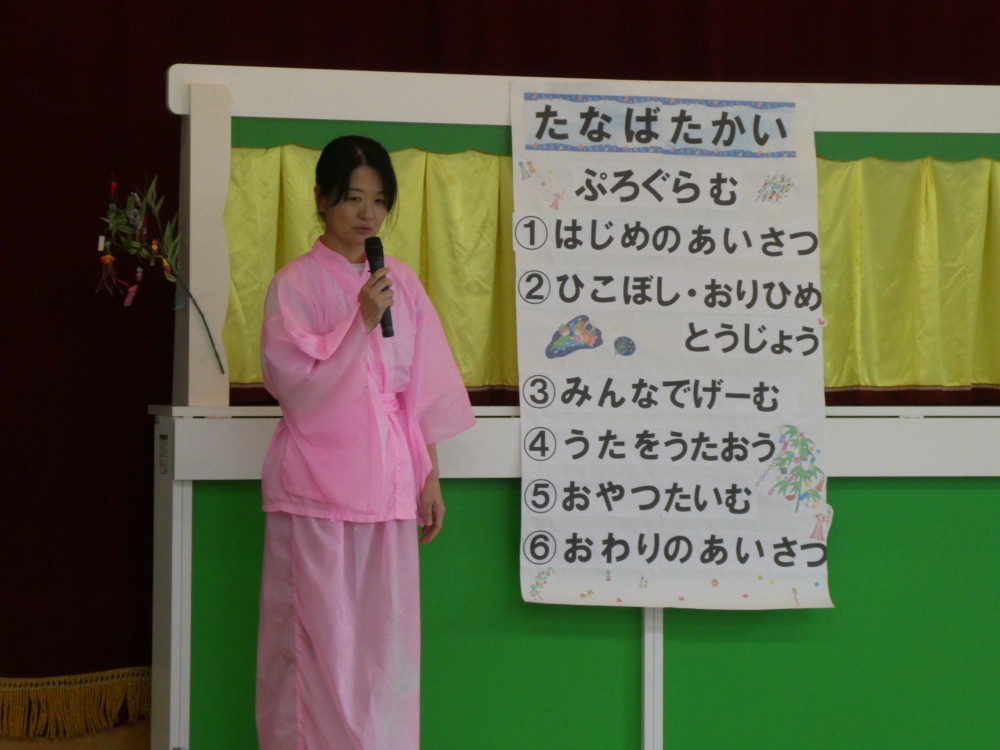 たなばたかい
ぷろぐらむ
①はじめのあいさつ
②ひこぼし・おりひめ
とうじょう
③みんなでげーむ
④うたをうたおう
⑤おやつたいむ
⑥おわりのあいさつ